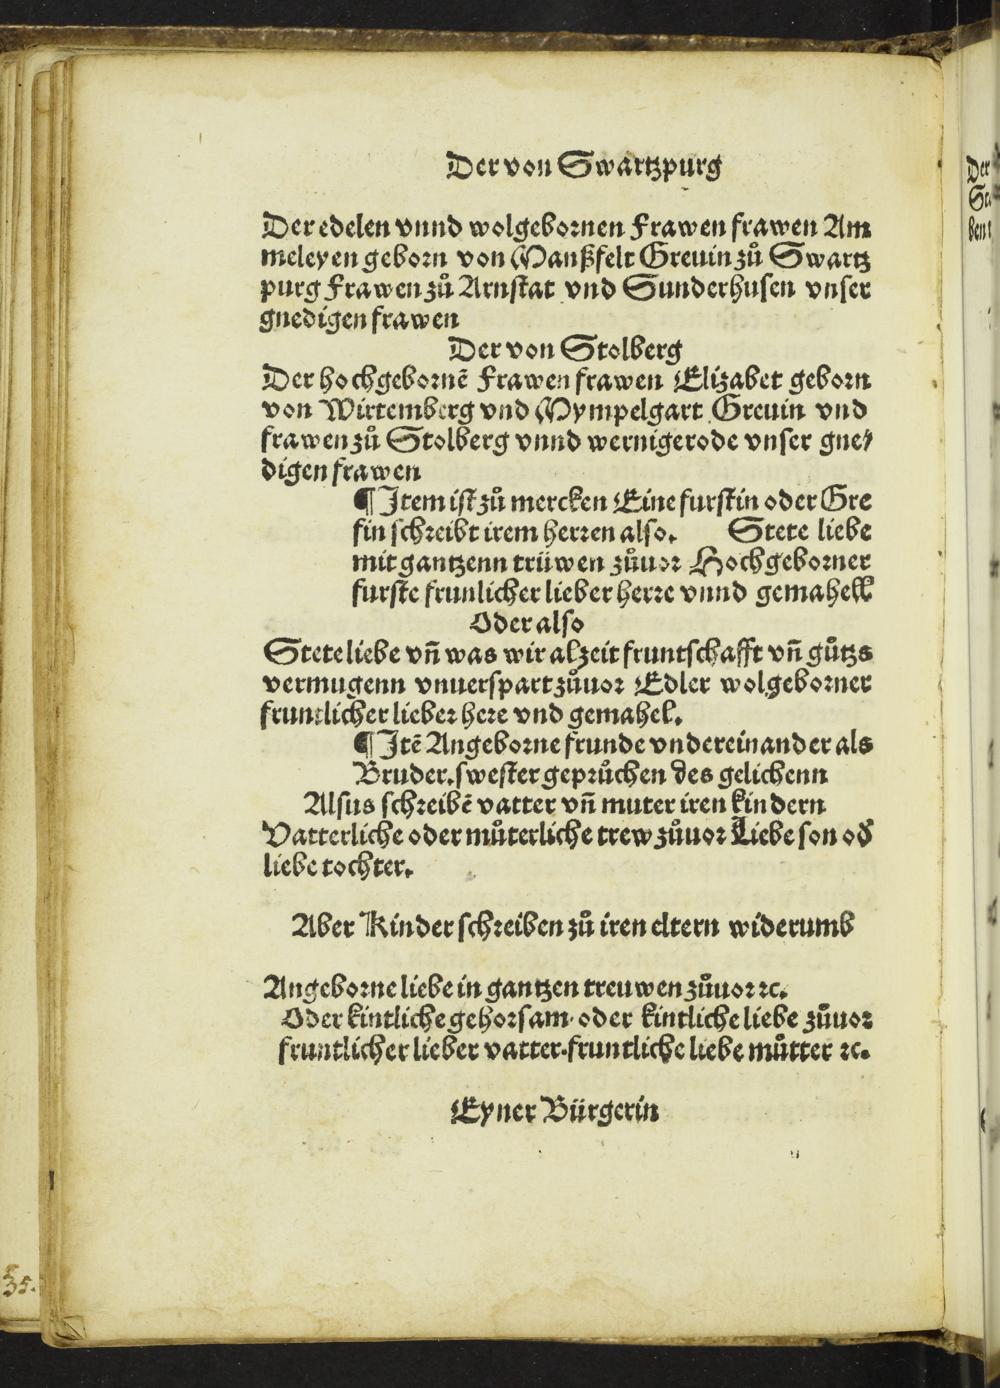 Der von Swartzpurg
Der edelen vnnd wolgebornen Frawen frawen Am
meleyen geborn von Manßfelt Greuin zů Swartz
purg Frawen zů Arnstat vnd Sunderhusen vnser
gnedigen frawen
Der von Stolberg
Der hochgebornē Frawen frawen Elizabet geborn
von Wirtemberg vnd Mympelgart Greuin vnd
frawen zů Stolberg vnnd wernigerode vnser gne⸗
digen frawen
¶ Item ist zů mercken Eine furstin oder Gre
fin schreibt irem herren also. Stete liebe
mit gantzenn trüwen zůuor Hochgeborner
furste fruntlicher lieber herre vnnd gemahell
Oder also
Stete liebe vn̄ was wir alzeit fruntschafft vn̄ gůtzs
vermugenn vnuerspart zůuor Edler wolgeborner
fruntlicher lieber here vnd gemahel.
¶ Itē Angeborne frunde vndereinander als
Bruder. swester geprůchen des gelichenn
Alsus schreibē vatter vn̄ muter iren kindern
Vatterliche oder můterliche trew zůuor Liebe son od̕
liebe tochter.
Aber Kinder schreiben zů iren eltern widerumb
Angeborne liebe in gantzen treuwen zůuor ⁊c.
Oder kintliche gehorsam· oder kintliche liebe zůuor
fruntlicher lieber vatter·fruntliche liebe můtter ⁊c.
Eyner Bürgerin
35.
Der